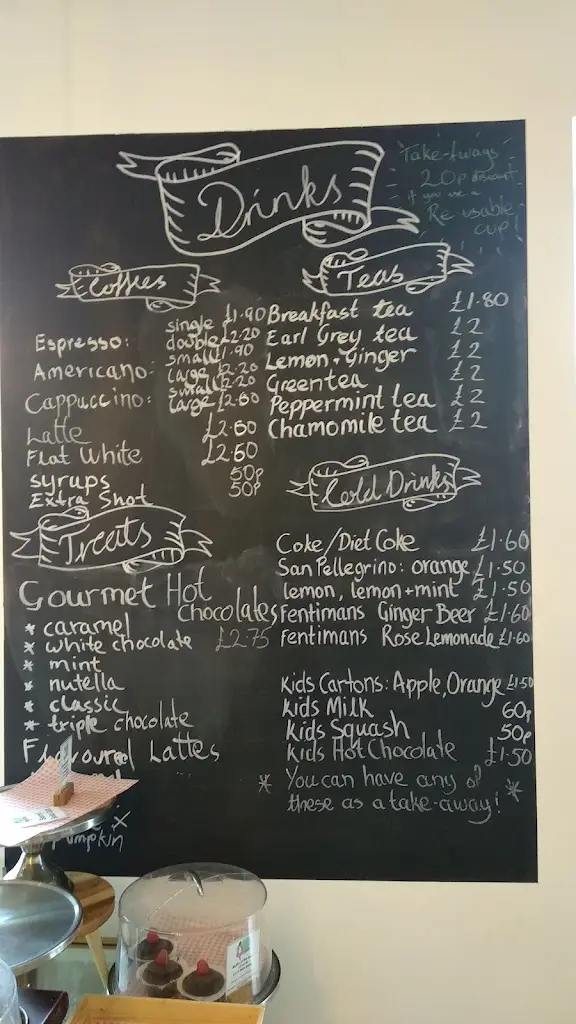 Drinks
Take-Aways
20p discount
if you use a
Re-usable
cup!
Coffees
Espresso: single £1.90
double £2.20
Americano: small £1.90
large £2.20
Cappuccino: small £2.20
large £2.60
Latte £2.60
Flat White £2.60
syrups 50p
Extra Shot 50p
Teas
Breakfast tea £1.80
Earl Grey tea £2
Lemon + Ginger £2
Green tea £2
Peppermint tea £2
Chamomile tea £2
Treats
Gourmet Hot
Chocolates
* caramel
* white chocolate £2.75
* mint
* nutella
* classic
* triple chocolate
Flavoured Lattes
pumpkin
Cold Drinks
Coke/Diet Coke £1.60
San Pellegrino: orange £1.50
lemon, lemon+mint £1.50
Fentimans Ginger Beer £1.60
Fentimans Rose Lemonade £1.60
Kids Cartons: Apple, Orange £1.50
Kids Milk 60p
Kids Squash 50p
Kids Hot Chocolate £1.50
* You can have any of
these as a take-away! *